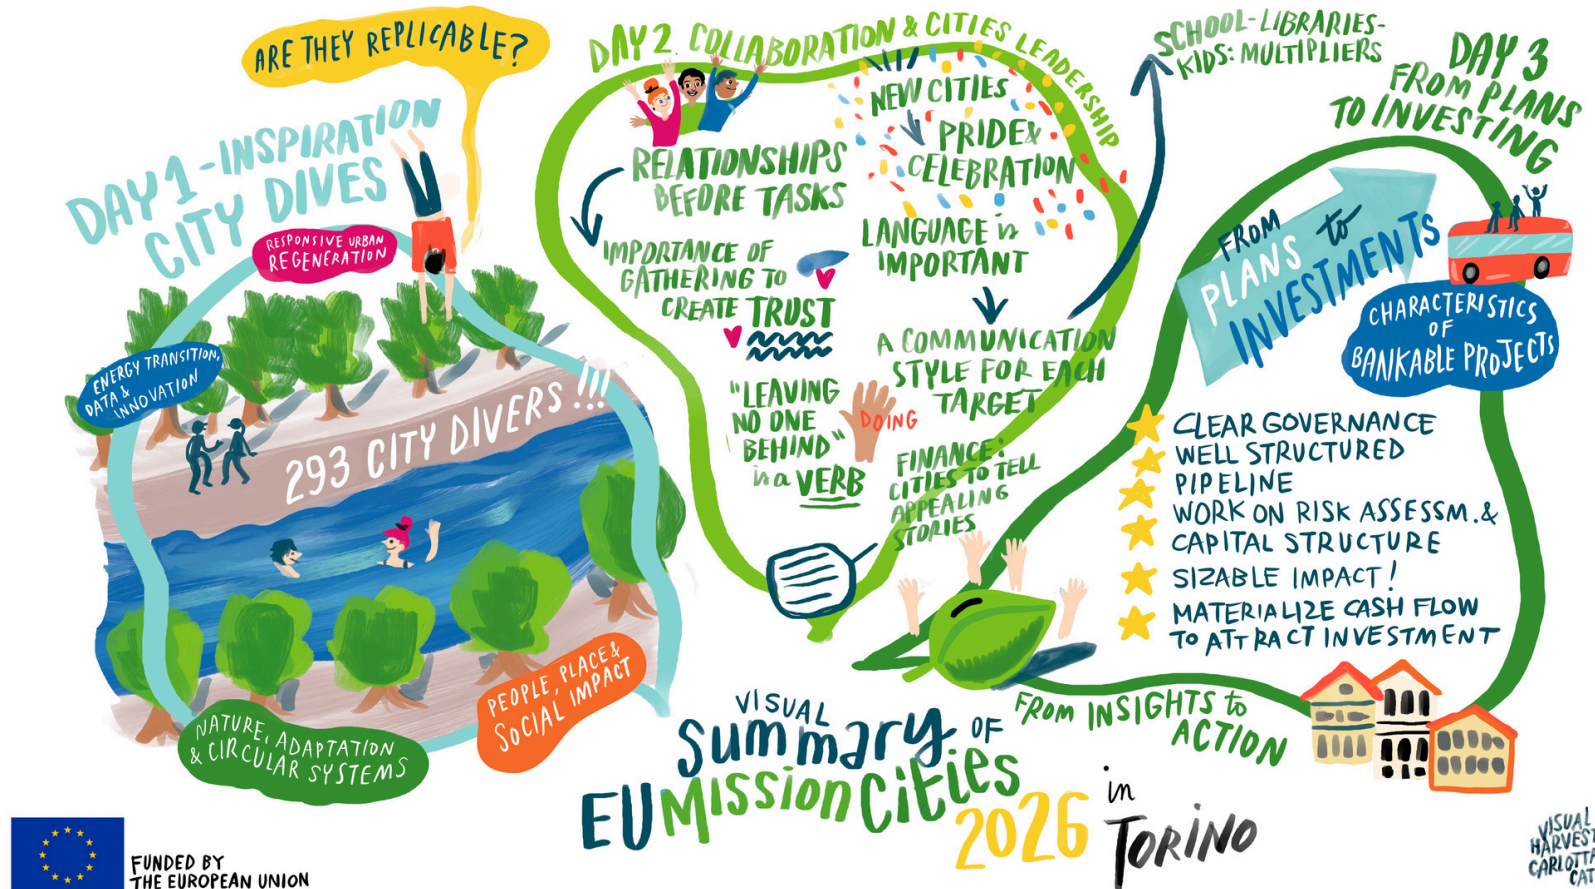 ARE THEY REPLICABLE?
DAY 1 - INSPIRATION
CITY DIVES
RESPONSIVE URBAN
REGENERATION
ENERGY TRANSITION,
DATA &
INNOVATION
293 CITY DIVERS !!!
PEOPLE, PLACE &
SOCIAL IMPACT
NATURE, ADAPTATION
& CIRCULAR SYSTEMS
DAY 2 COLLABORATION & CITIES LEADERSHIP
RELATIONSHIPS
BEFORE TASKS
IMPORTANCE OF
GATHERING TO
CREATE TRUST
"LEAVING
NO ONE
BEHIND"
is a VERB
DOING
NEW CITIES
PRIDE &
CELEBRATION
LANGUAGE is
IMPORTANT
A COMMUNICATION
STYLE FOR EACH
TARGET
FINANCE:
CITIES TO TELL
APPEALING
STORIES
SCHOOL-LIBRARIES-
KIDS: MULTIPLIERS
DAY 3
FROM PLANS
TO INVESTING
FROM
PLANS to
INVESTMENTS
CHARACTERISTICS
OF
BANKABLE PROJECTS
CLEAR GOVERNANCE
WELL STRUCTURED
PIPELINE
WORK ON RISK ASSESSM. &
CAPITAL STRUCTURE
SIZABLE IMPACT!
MATERIALIZE CASH FLOW
TO ATTRACT INVESTMENT
FROM INSIGHTS to
ACTION
VISUAL
Summary OF
EU Mission Cities
2026 in
TORINO
FUNDED BY
THE EUROPEAN UNION
VISUAL
HARVEST
CARLOTTA
CAT